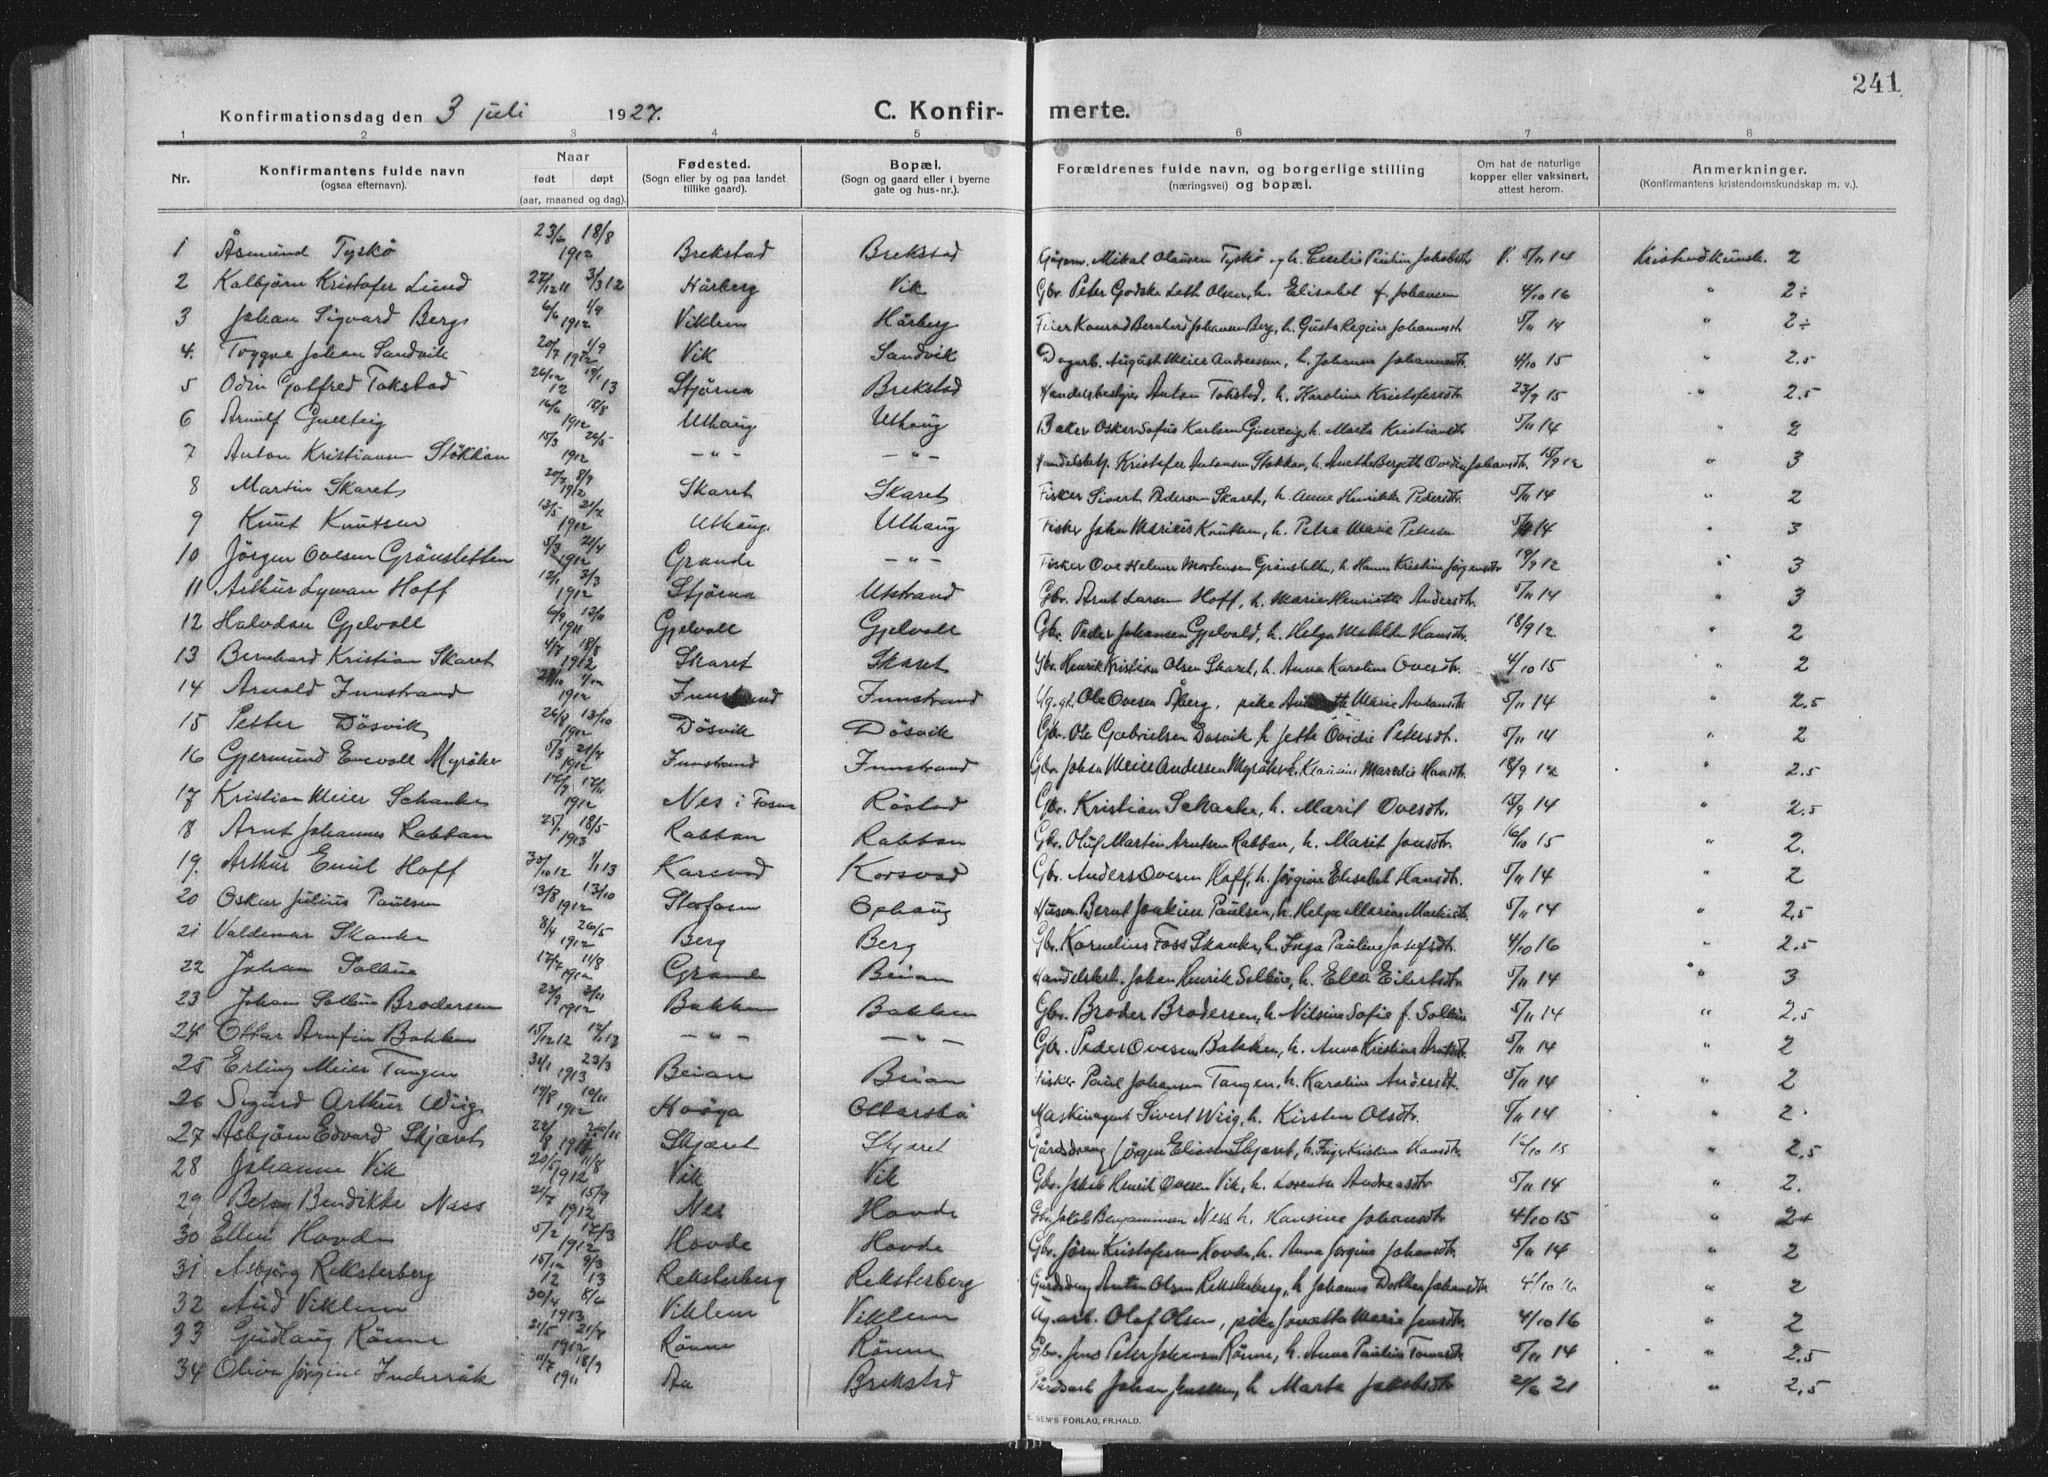 241
Konfirmationsdag den 3 juli 1927.
C. Konfir- merte.
1 2 3 4 5 6 7 8
Nr. Konfirmantens fulde navn (ogsaa efternavn). Naar født døpt (aar, maaned og dag). Fødested. (Sogn eller by og paa landet tillike gaard). Bopæl. (Sogn og gaard eller i byerne gate og hus-nr.). Forældrenes fulde navn, og borgerlige stilling (næringsvei) og bopæl. Om hat de naturlige kopper eller vaksinert, attest herom. Anmerkninger. (Konfirmantens kristendomskundskap m. v.).
1 Åsmund Tyskø 18/8 1912 Brekstad Brekstad Mikal Olausen Tyskø og h. Jakobsdtr V. 5/11 14 2
2 Kalbjørn Kristofer Lund 27/12 11 3/3 12 Hårberg Vik Gbr. Peter Godske Leth Olsen, h. Elisabet f. Johansen 4/10 16 " 2÷
3 Johan Sigvard Berg 6/6 1/9 1912 Viklem Hårberg Feier Konrad Bernhard Johansen Berg, h. Gusta Regine Johannsdtr 5/11 14 " 2÷
4. Trygve Johan Sandvik 20/7 1/9 1912 Vik Sandvik Dagarb. August Meier Andreassen, h. Johanna Johannsdtr. 4/10 15 " 2.5
5 Odin Gotfred Tokstad 12 13 Stjørna Brekstad Handelsbestyrer Anton Tokstad, h. Karoline Kristofersdtr. 23/9 15 " 2.5
6 Arnulf Gullteig 16/6 18/8 1912 Uthaug Uthaug Baker Oskar Sofus Karlsen Gullteig, h. Marta Kristiansdtr 5/11 14 " 2
7 Anton Kristiansen Stokkan 15/3 26/5 1912 - " - - " - Kristofer Antonsen Stokkan, h. Anette Bergitte Ovedia Johansdtr. 18/9 12 " 3
8 Martin Skaret 20/7 8/9 1912 Skaret Skaret Fisker Sivert Pedersen Skaret, h. Anne Henrikke Pedersdtr. 5/11 14 " 2
9 Knut Knutsen 13/5 21/7 1912 Uthaug Uthaug Fisker John Marius Knutsen, h. Petra Marie Petersen 5/11 14 " 3
10 Jørgen Ovesen Grønsletten 5/3 21/4 1912 Grande - " - Fisker Ove Helmer Mortensen Grønsletten, h. Hanna Kristine Jørgensdtr 18/9 12 " 3
11 Arthur Lyman Hoff 12/1 3/3 1912 Stjørna Utstrand Gbr. Arnt Larsen Hoff, h. Marie Henriette Andersdtr. 5/11 14 " 3
12 Halvdan Gjelvoll 6/9 12/11 1911 Gjelvoll Gjelvoll Gbr. Peder Johansen Gjelvold, h. Helga Matilde Hansdtr. 18/9 12 " 2
13 Bernhard Kristian Skaret 4/7 18/8 1912 Skaret Skaret Gbr. Henrik Kristian Olsen Skaret, h. Anna Karoline Ovesdtr. 4/10 15 " 2
14 Arnold Innstrand 1912 Innstrand Innstrand Ole Ovesen Åberg, pike Marie Antonsdtr 5/11 14 " 2.5
15 Petter Døsvik 26/8 13/10 1912 Døsvik Døsvik Gbr. Ole Gabrielsen Døsvik h Jette Ovidie Petersdtr. 5/11 14 " 2
16 Gjermund Enevoll Myråker 5/3 21/4 1912 Innstrand Innstrand Gbr. Johan Meier Andersen Myråker h. Klausine Marselie Hansdtr. 18/9 12 " 2.5
17 Kristian Meier Schanke 1912 Nes i Fosen Røstad Gbr. Kristian Schanke, h. Marit Ovesdtr. 15/9 14 " 2.5
18 Arnt Johannes Rabban 25/1 18/5 1913 Rabban Rabban Gbr. Oluf Martin Arntsen Rabban, h. Marit Jonsdtr. 16/10 15 " 2.
19. Arthur Emil Hoff 30/10 12 1/1 13 Karsvod Korsvod Gbr. Anders Ovesen Hoff, h. Jørgine Elisabet Hansdtr. 5/11 14 " 2
20 Oskar Julius Paulsen 13/8 13/10 1912 Storfosen Ophaug Husm. Bernt Joakim Paulsen, h. Helga Marine Martinsdtr 5/11 14 " 2.5
21 Valdemar Skanke 8/4 26/5 1912 Berg Berg Gbr. Kornelius Foss Skanke, h. Inga Pauline Josefsdtr. 4/10 16 " 2.5
22 Johan Solbue 17/7 11/8 1912 Grande Beian Johan Henrik Solbue, h. Ella Eilertsdtr. 5/11 14 " 3
23 Johan Solbue Brodersen 22/9 3/11 1912 Bakken Bakken Gbr. Broder Brodersen, h. Nilsine Sofie f. Solbue 5/11 14 " 2.5
24 Ottar Arnfin Bakken 15/12 12 13 - " - - " - Gbr. Peder Ovesen Bakken, h. Anna Kristine Arntsdtr 5/11 14 " 2
25 Erling Meier Tangen 31/1 23/3 1913 Beian Beian Fisker Paul Johansen Tangen, h. Karoline Andersdtr. 5/11 14 " 2
26 Sigurd Arthur Wiig 19/8 10/11 1912 Ottersbo Maskinagent Sivert Wiig, h. Kirsten Olsdtr. 5/11 14 " 2.
27 Asbjørn Edvard Skjæret 22/9 Skjæret Skjæret Gårdsdreng Jørgen Eliassen Skjæret, h. Inger Kristine Hansdtr. 10 15 " 2.5
28 Johanne Vik 20/5 11/8 1912 Vik Vik Gbr. Jakob Henrik Ovesen Vik, h. Lorentse Andreasdtr 5/11 14 " 2.
29 Bendikke Næss 21/7 15/9 1912 Nes Hovde Gbr. Jakob Benjaminsen Ness h. Hansine Johansdtr 4/10 15 " 2+
30 Ellen Hovde 5/2 17/3 1912 Hovde Hovde Gbr. Jørn Kristofersen Hovde, h. Anna Jørgine Johansdtr. 5/11 14 " 2
31 Asbjørg Reksterberg 12 13 Reksterberg Reksterberg Gårdsdreng Anton Olsen Reksterberg, h Johanna Dorthea Johansdtr 4/10 16 " 2
32 Aud Viklem 30/4 8/6 1913 Viklem Viklem Olaf Olsen, pike Marie Jensdtr. 4/10 16 " 2
33 Gudlaug Rønne 21/5 21/8 1912 Rønne Rønne Gbr. Jens Peter Johansen Rønne, h. Anna Pauline Tomasdtr 5/11 14 " 2.5
34 Oliva Jørgine Inderråk 11/7 18/9 1911 Aa Brekstad Johan Jensen, h Marta Jakobsdtr 21/6 21 " 2.5
E. SEM'S FORLAG, FR.HALD.